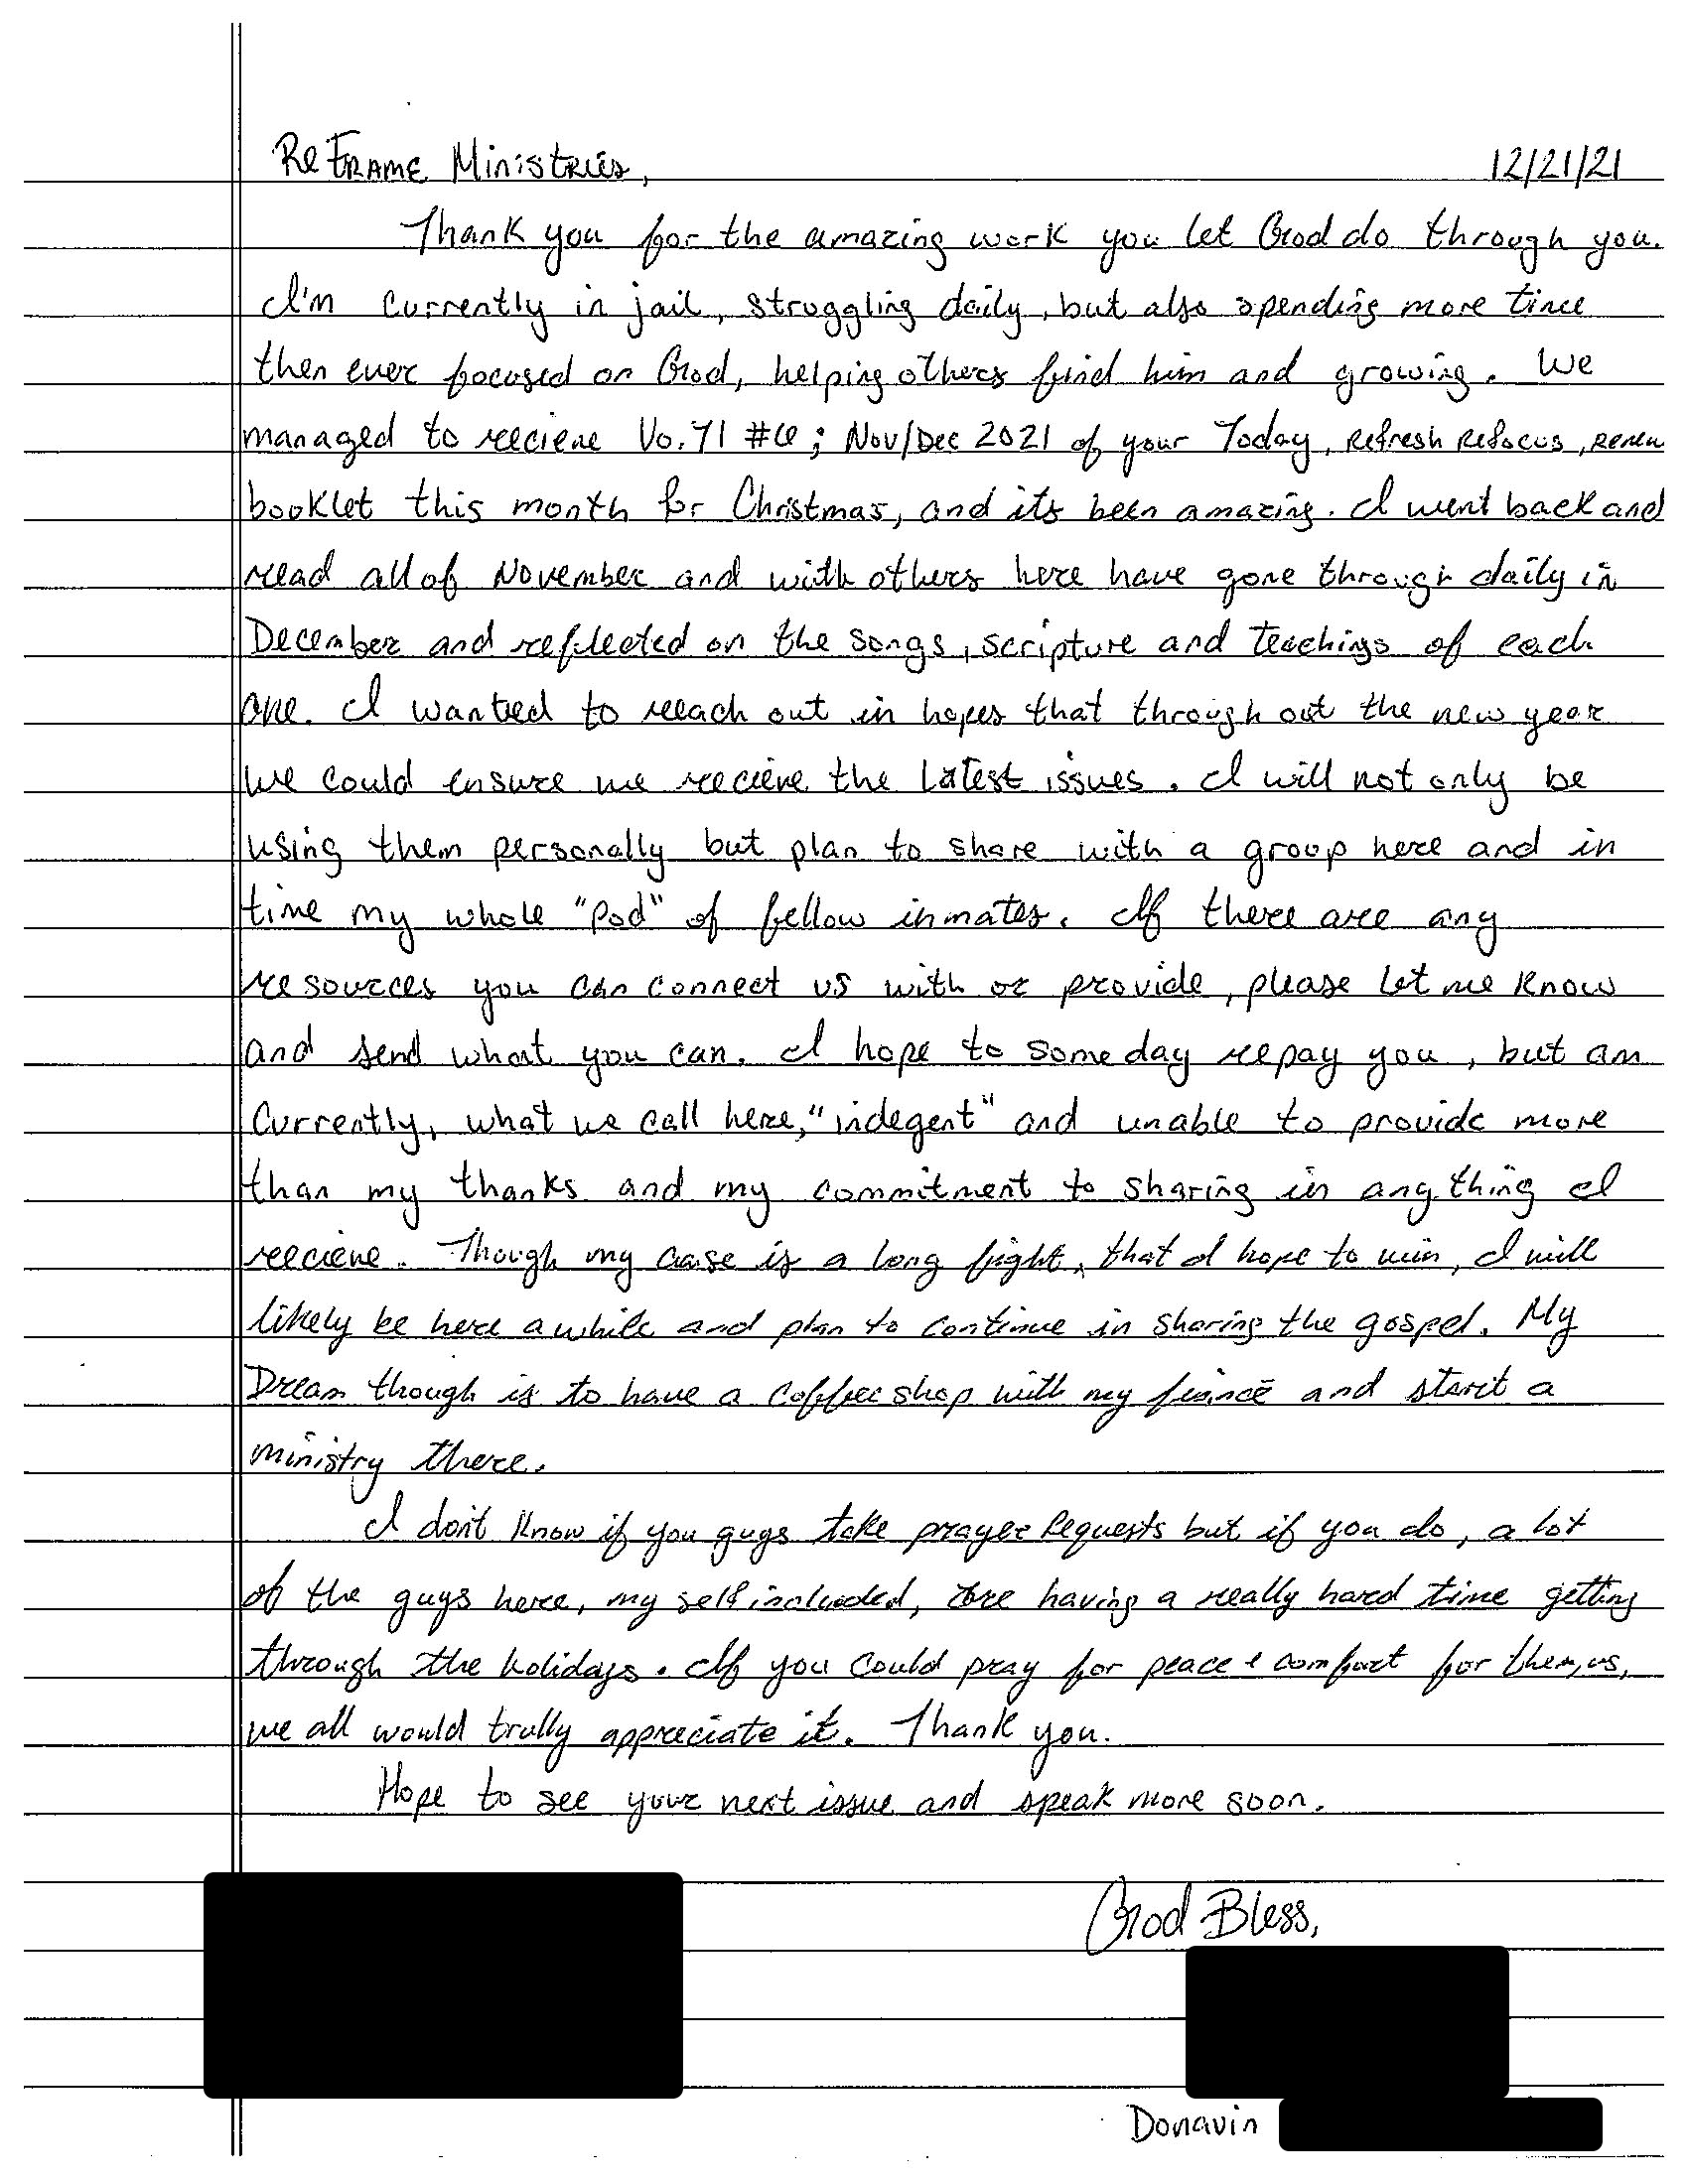 ReFrame Ministries, 12/21/21
Thank you for the amazing work you let God do through you.
I'm currently in jail, struggling daily, but also spending more time
then ever focused on God, helping others find him and growing. We
managed to reecieve Vo. 71 #6; Nov/Dec 2021 of your Today, Refresh Refocus, Renew
booklet this month for Christmas, and its been amazing. I went back and
read all of November and with others here have gone through daily in
December and reflected on the songs, scripture and teachings of each
one. I wanted to reach out in hopes that through out the new year
we could ensure we recieve the latest issues. I will not only be
using them personally but plan to share with a group here and in
time my whole "Pod" of fellow inmates. If there are any
resources you can connect us with or provide, please let me know
and send what you can. I hope to someday repay you, but am
Currently, what we call here, "indegent" and unable to provide more
than my thanks and my commitment to sharing in any thing I
recieve. Though my case is a long fight, that I hope to win, I will
likely be here a while and plan to continue in sharing the gospel. My
Dream though is to have a coffee shop with my fiancé and start a
ministry there.
I don't know if you guys take prayer Requests but if you do, a lot
of the guys here, my self included, are having a really hard time getting
through the holidays. If you could pray for peace & comfort for them, us,
we all would trully appreciate it. Thank you.
Hope to see your next issue and speak more soon.
God Bless,
Donavin